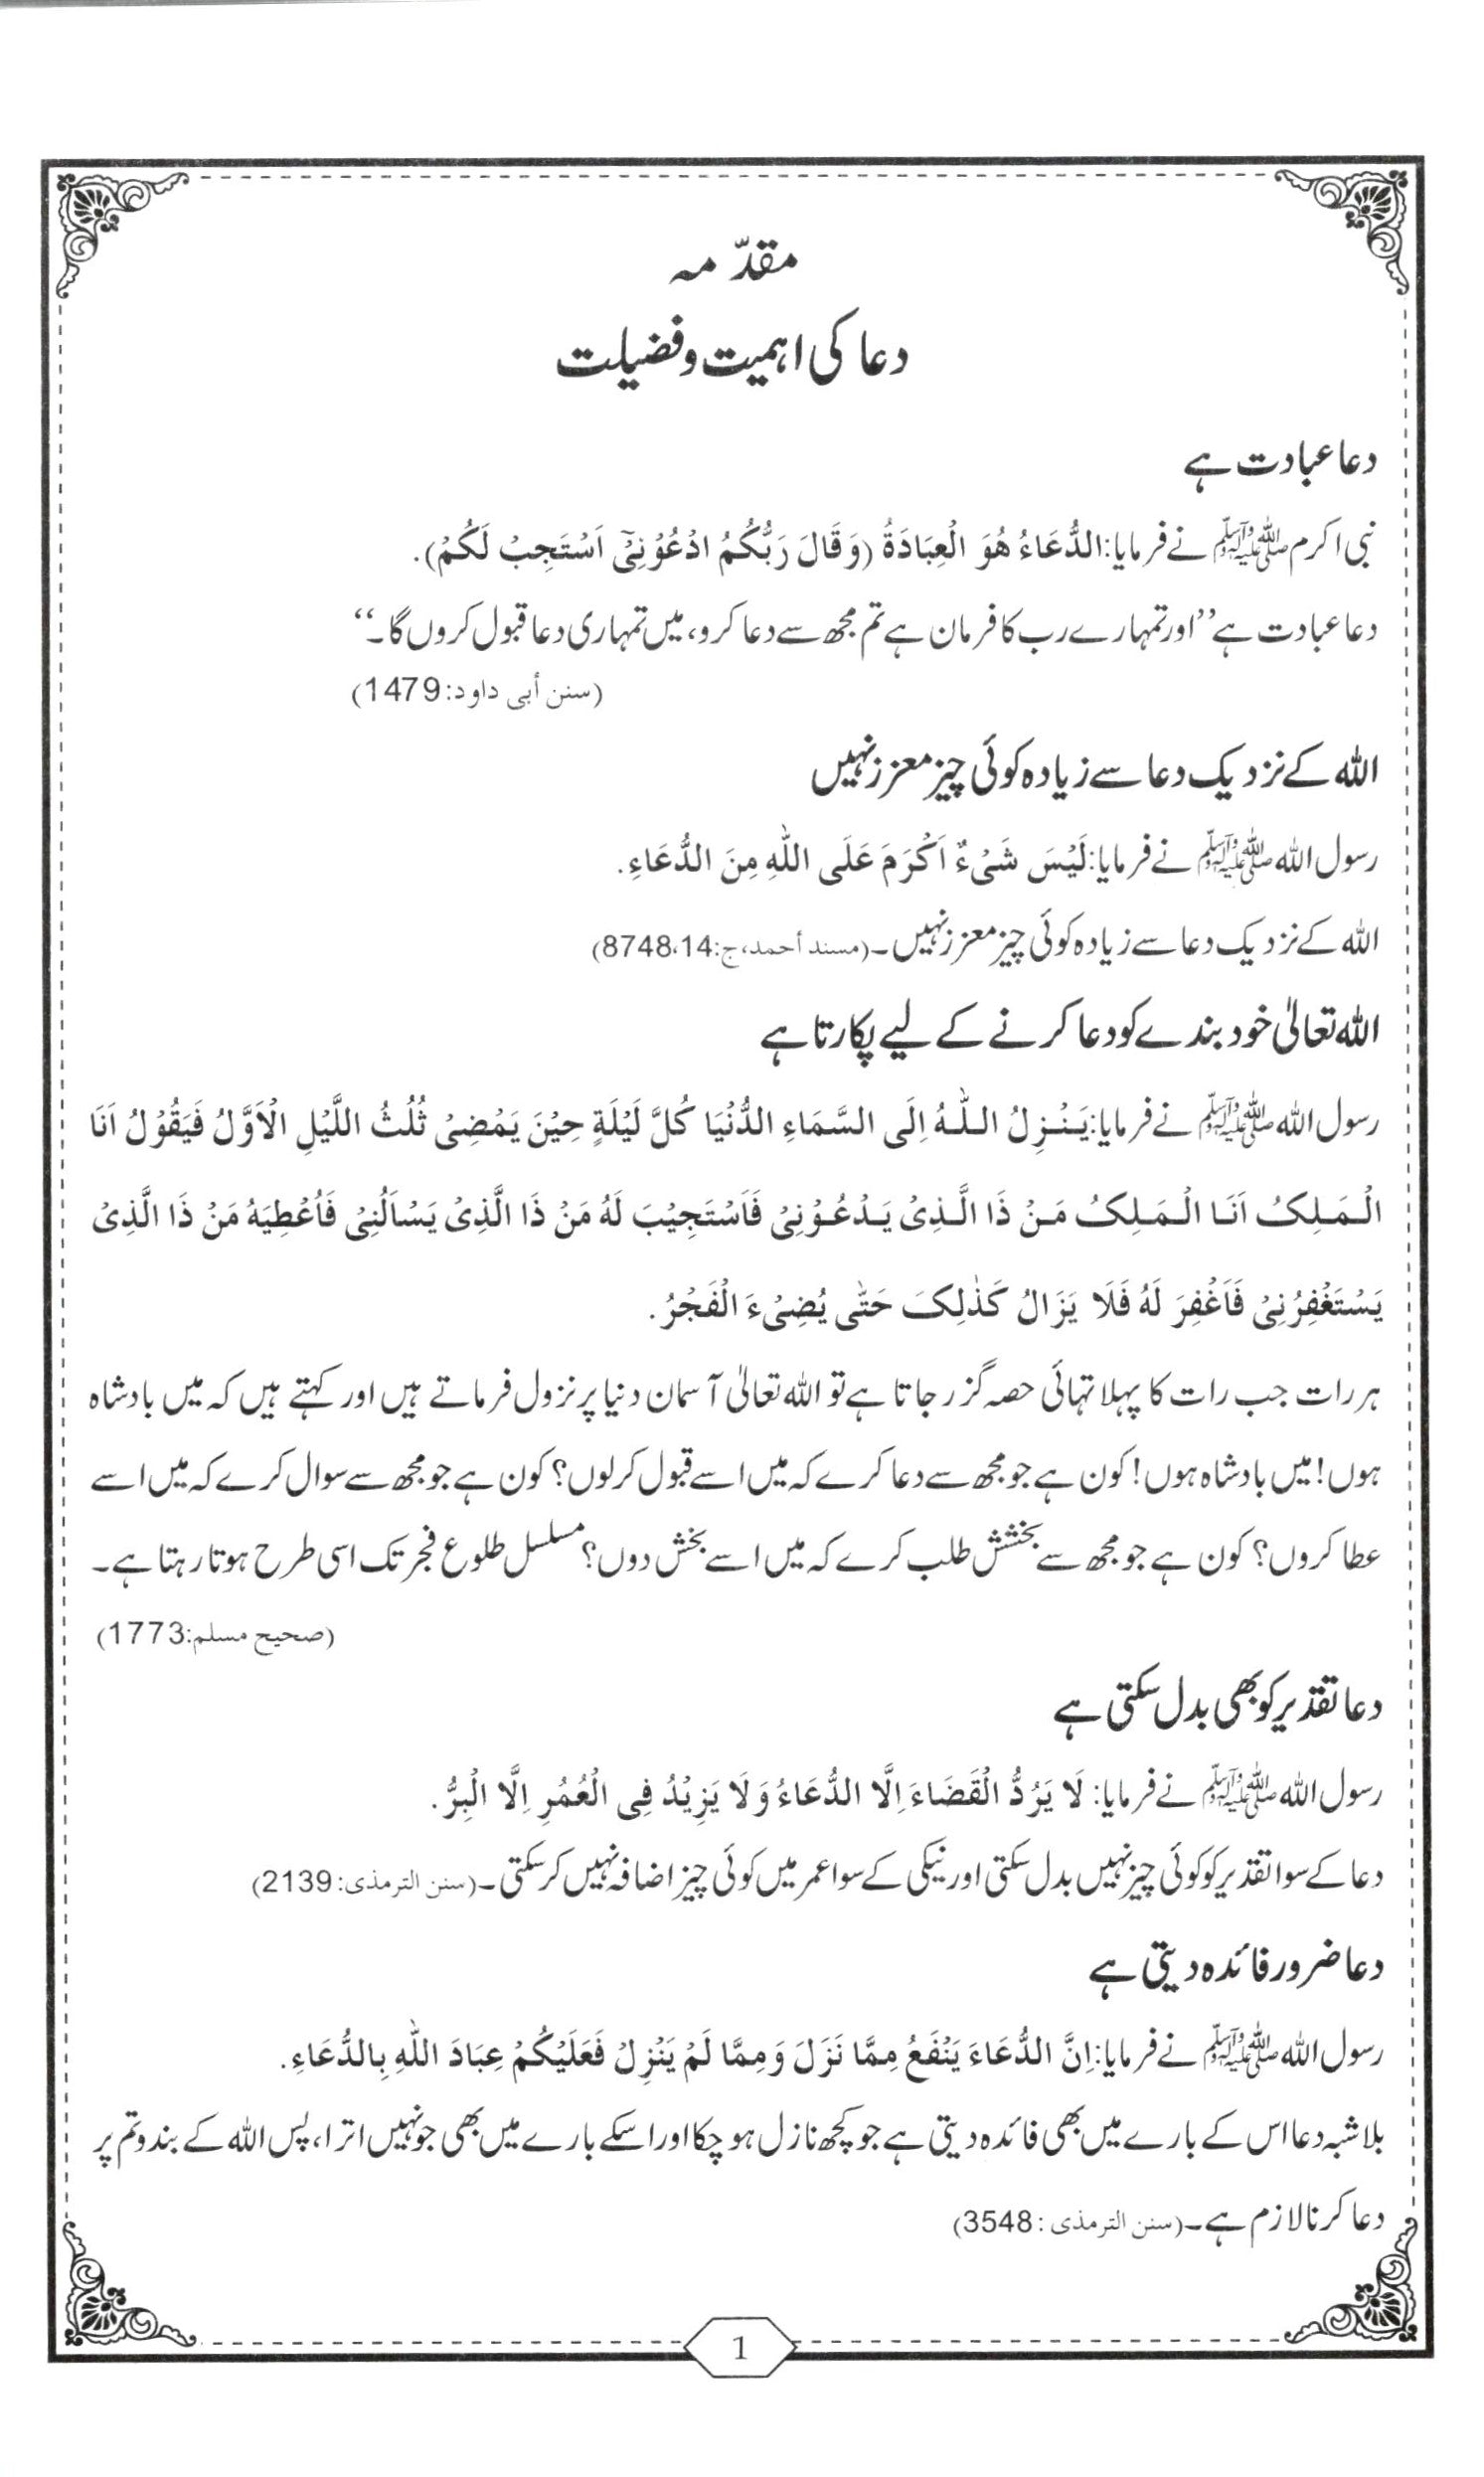 مقدّمہ
دعا کی اہمیت و فضیلت
دعا عبادت ہے
نبی اکرم ﷺ نے فرمایا: الدُّعَاءُ هُوَ الْعِبَادَةُ (وَقَالَ رَبُّكُمُ ادْعُوْنِیْٓ اَسْتَجِبْ لَكُمْ).
دعا عبادت ہے ’’اور تمہارے رب کا فرمان ہے تم مجھ سے دعا کرو، میں تمہاری دعا قبول کروں گا۔‘‘
(سنن أبی داود:1479)
اللہ کے نزدیک دعا سے زیادہ کوئی چیز معزز نہیں
رسول اللہ ﷺ نے فرمایا: لَيْسَ شَیْءٌ اَكْرَمَ عَلَی اللّٰهِ مِنَ الدُّعَاءِ.
اللہ کے نزدیک دعا سے زیادہ کوئی چیز معزز نہیں۔ (مسند أحمد، ج:14،8748)
اللہ تعالیٰ خود بندے کو دعا کرنے کے لیے پکارتا ہے
رسول اللہ ﷺ نے فرمایا: يَنْزِلُ اللّٰهُ اِلَی السَّمَاءِ الدُّنْيَا كُلَّ لَيْلَةٍ حِيْنَ يَمْضِیْ ثُلُثُ اللَّيْلِ الْاَوَّلُ فَيَقُوْلُ اَنَا
الْمَلِکُ اَنَا الْمَلِکُ مَنْ ذَا الَّذِیْ يَدْعُوْنِیْ فَاَسْتَجِيْبَ لَهُ مَنْ ذَا الَّذِیْ يَسْاَلُنِیْ فَاُعْطِيَهُ مَنْ ذَا الَّذِیْ
يَسْتَغْفِرُنِیْ فَاَغْفِرَ لَهُ فَلَا يَزَالُ كَذٰلِکَ حَتّٰی يُضِیْءَ الْفَجْرُ.
ہر رات جب رات کا پہلا تہائی حصہ گزر جاتا ہے تو اللہ تعالیٰ آسمان دنیا پر نزول فرماتے ہیں اور کہتے ہیں کہ میں بادشاہ
ہوں! میں بادشاہ ہوں! کون ہے جو مجھ سے دعا کرے کہ میں اسے قبول کر لوں؟ کون ہے جو مجھ سے سوال کرے کہ میں اسے
عطا کروں؟ کون ہے جو مجھ سے بخشش طلب کرے کہ میں اسے بخش دوں؟ مسلسل طلوع فجر تک اسی طرح ہوتا رہتا ہے۔
(صحیح مسلم:1773)
دعا تقدیر کو بھی بدل سکتی ہے
رسول اللہ ﷺ نے فرمایا: لَا يَرُدُّ الْقَضَاءَ اِلَّا الدُّعَاءُ وَلَا يَزِيْدُ فِی الْعُمُرِ اِلَّا الْبِرُّ.
دعا کے سوا تقدیر کو کوئی چیز نہیں بدل سکتی اور نیکی کے سوا عمر میں کوئی چیز اضافہ نہیں کر سکتی۔ (سنن الترمذی:2139)
دعا ضرور فائدہ دیتی ہے
رسول اللہ ﷺ نے فرمایا: اِنَّ الدُّعَاءَ يَنْفَعُ مِمَّا نَزَلَ وَمِمَّا لَمْ يَنْزِلْ فَعَلَيْكُمْ عِبَادَ اللّٰهِ بِالدُّعَاءِ.
بلاشبہ دعا اس کے بارے میں بھی فائدہ دیتی ہے جو کچھ نازل ہو چکا اور اسکے بارے میں بھی جو نہیں اترا، پس اللہ کے بندو تم پر
دعا کرنا لازم ہے۔ (سنن الترمذی:3548)
1